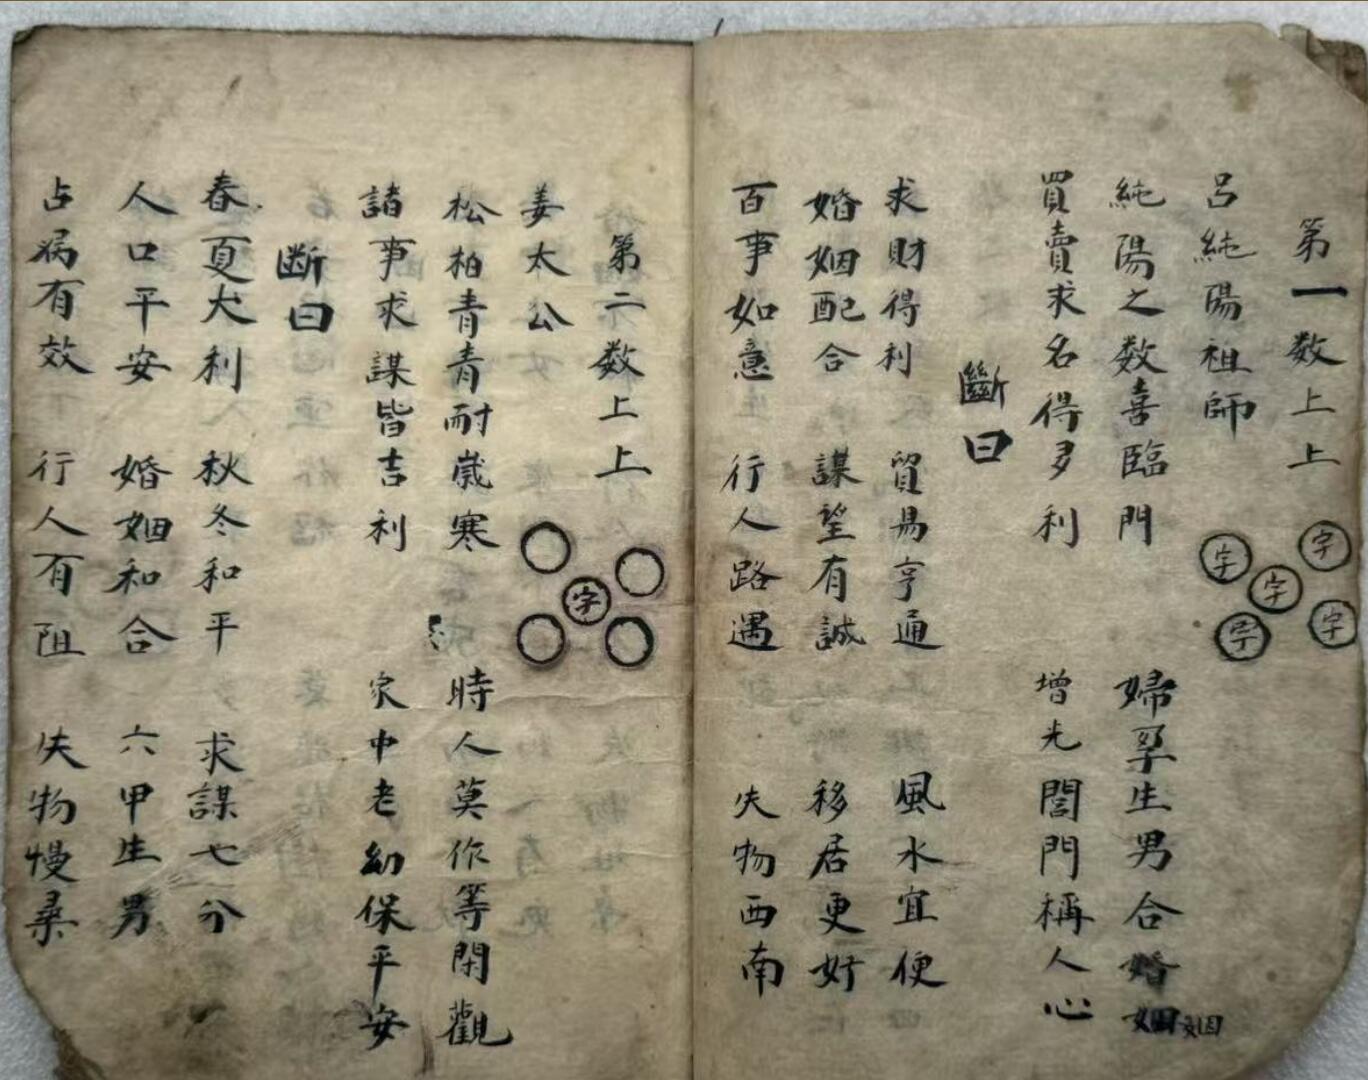 第一数上上
字 字 字 字 字
呂純陽祖師
純陽之数喜臨門 婦孕生男合婚姻
姻
買賣求名得多利 增光閤門稱人心
斷曰
求財得利 貿易亨通 風水宜便
婚姻配合 謀望有誠 移居更好
百事如意 行人路遇 失物西南
第二数上上
字
姜太公
松柏青青耐歲寒 時人莫作等閑觀
諸事求謀皆吉利 家中老幼保平安
断曰
春夏大利 秋冬和平 求謀七分
人口平安 婚姻和合 六甲生男
占病有效 行人有阻 失物慢尋